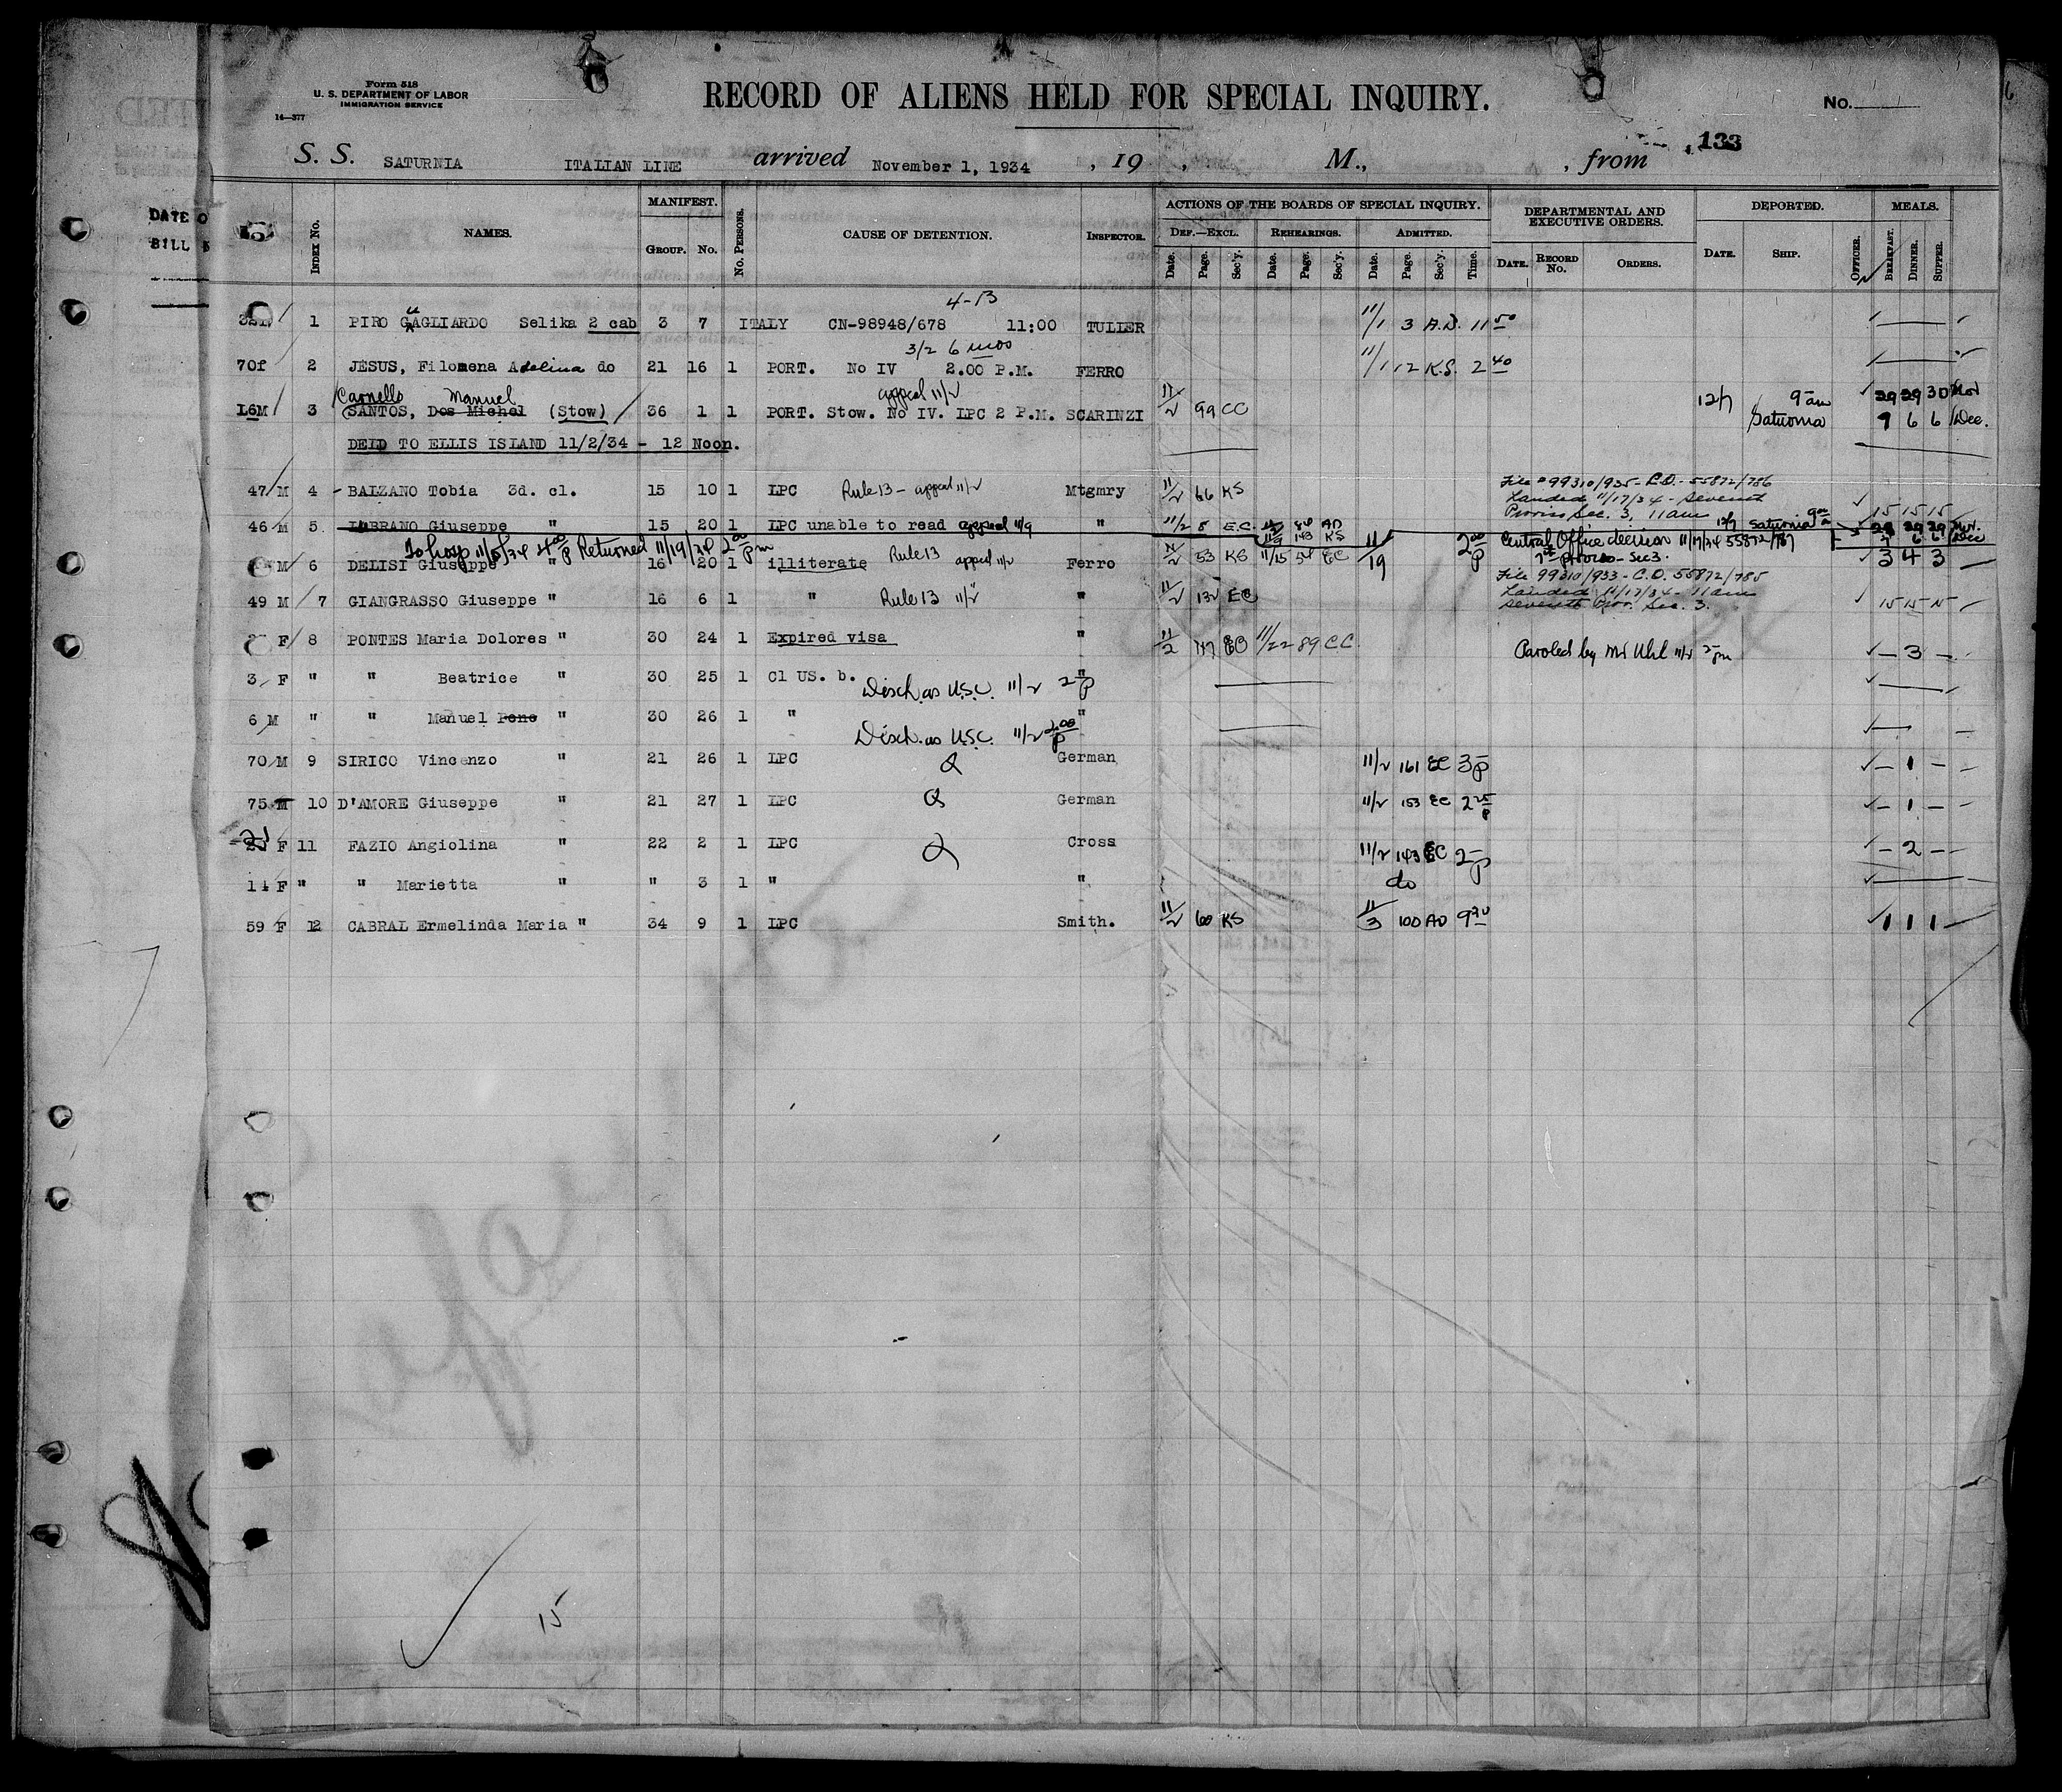 Form 518
U. S. DEPARTMENT OF LABOR
IMMIGRATION SERVICE
14—377
RECORD OF ALIENS HELD FOR SPECIAL INQUIRY.
No.
133
S. S. SATURNIA ITALIAN LINE arrived November 1, 1934 , 19 , M., , from
DATE O
BILL
INDEX No. NAMES. MANIFEST. GROUP. No. No. PERSONS. CAUSE OF DETENTION. INSPECTOR. ACTIONS OF THE BOARDS OF SPECIAL INQUIRY. DEF.—EXCL. REHEARINGS. ADMITTED. DEPARTMENTAL AND EXECUTIVE ORDERS. DEPORTED. MEALS.
Date. Page. Sec'y. Date. Page. Sec'y. Date. Page. Sec'y. Time. DATE. RECORD No. ORDERS. DATE. SHIP. OFFICER. BREAKFAST. DINNER. SUPPER.
4-B
1 PIRO GAGLIARDO Selika 2 cab 3 7 ITALY CN-98948/678 11:00 TULLER 11/1 3 A.D. 11 50
3/2 6 mos
70f 2 JESUS, Filomena Adelina do 21 16 1 PORT. No IV 2.00 P.M. FERRO 11/1 12 K.S. 2 40
Carnello Manuel appeal 11/2
16M 3 SANTOS, Dos Michel (Stow) 36 1 1 PORT. Stow. No IV. LPC 2 P.M. SCARINZI 11/2 99 CC 12/7 9 am Saturnia 29 29 30 Nov
9 6 6 Dec.
DEID TO ELLIS ISLAND 11/2/34 - 12 Noon.
47 M 4 BALZANO Tobia 3d. cl. 15 10 1 LPC Rule 13 - appeal 11/2 Mtgmry 11/2 66 KS File # 99310/935 - C.D. - 55872/786
Landed 11/17/34 - Seventh
Proviso Sec. 3, 11 am 15 15 15
46 M 5 LUBRANO Giuseppe " 15 20 1 LPC unable to read appeal 11/9 " 11/2 8 E.C. 143 KS 12/7 Saturnia 9 am 29 29 Nov.
To hosp 11/5/34 4 00 P Returned 11/19/34 2 00 pm
M 6 DELISI Giuseppe " 16 20 1 illiterate Rule 13 appeal 11/2 Ferro 11/2 53 KS 11/15 54 EC 11/19 2 00 P Central Office decision 11/17/34 55872/787
7th proviso - Sec 3. 3 4 3
49 M 7 GIANGRASSO Giuseppe " 16 6 1 " Rule 13 11/2 " 11/2 132 EC File 99310/933 - C.D. 55872/785
Landed 11/17/34 - 11 am
Seventh Prov. Sec. 3. 15 15 15
F 8 PONTES Maria Dolores " 30 24 1 Expired visa " 11/2 117 EC 11/22 89 CC Paroled by Mr Uhl 11/2 2 pm - 3 -
3 F " " Beatrice " 30 25 1 Cl US. b. Disch. as U.S.C. 11/2 2 P "
6 M " " Manuel Pene " 30 26 1 " Disch. as U.S.C. 11/2 2.00 P "
70 M 9 SIRICO Vincenzo " 21 26 1 LPC German 11/2 161 EC 3 P - 1 -
75 M 10 D'AMORE Giuseppe " 21 27 1 LPC German 11/2 153 EC 2 25 P - 1 -
F 11 FAZIO Angiolina " 22 2 1 LPC Cross 11/2 143 EC 2 P - 2 -
14 F " " Marietta " " 3 1 " " do
59 F 12 CABRAL Ermelinda Maria " 34 9 1 LPC Smith. 11/2 60 KS 11/3 100 AD 9 30 1 1 1
15